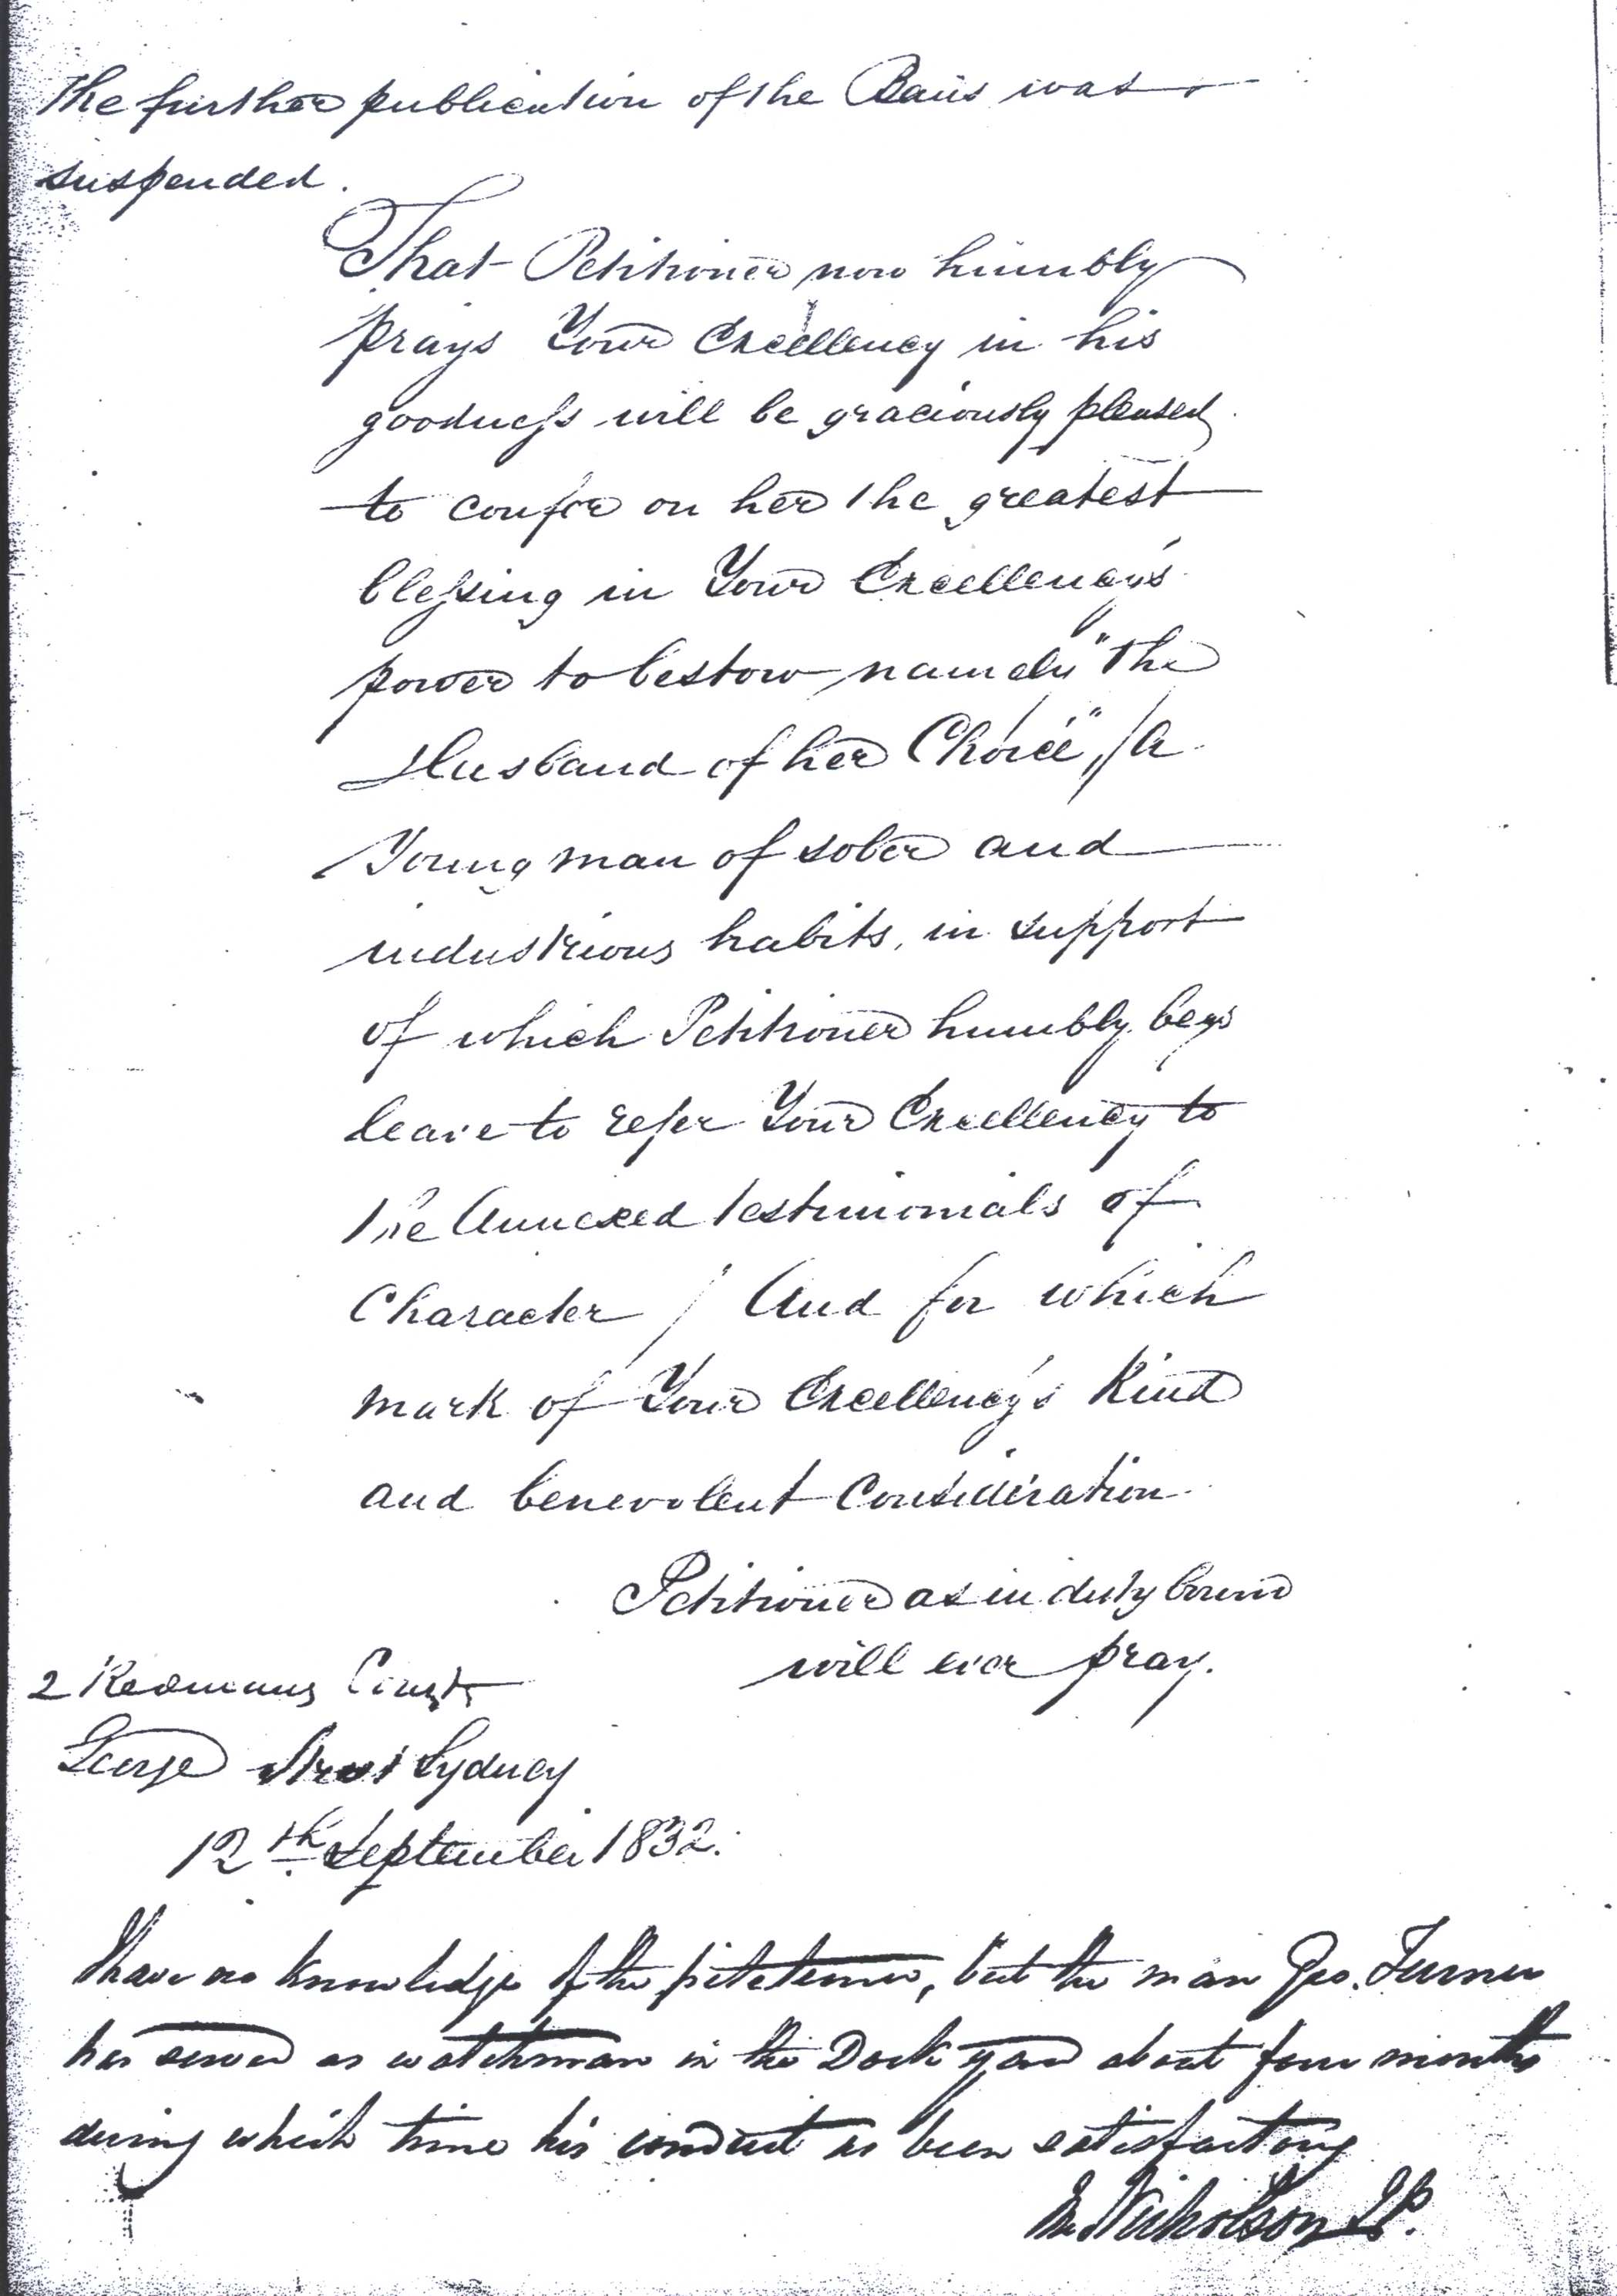 The further publication of the Bans was
suspended.
That Petitioner now humbly
prays Your Excellency in his
goodness will be graciously pleased
to confer on her the greatest
blessing in Your Excellency's
power to bestow namely "The
Husband of her Choice", /A
Young man of sober and
industrious habits, in support
of which Petitioner humbly begs
leave to refer Your Excellency to
the Annexed testimonials of
Character / And for which
mark of Your Excellency's Kind
and benevolent Consideration
Petitioner as in duty bound
will ever pray.
2 Redmans Court
George Street Sydney
12th September 1832.
I have no knowledge of the petetioner, but the man Geo. Turner
has served as watchman in the Dock yard about four months
during which time his conduct as been satisfactory
Nicholson JP.